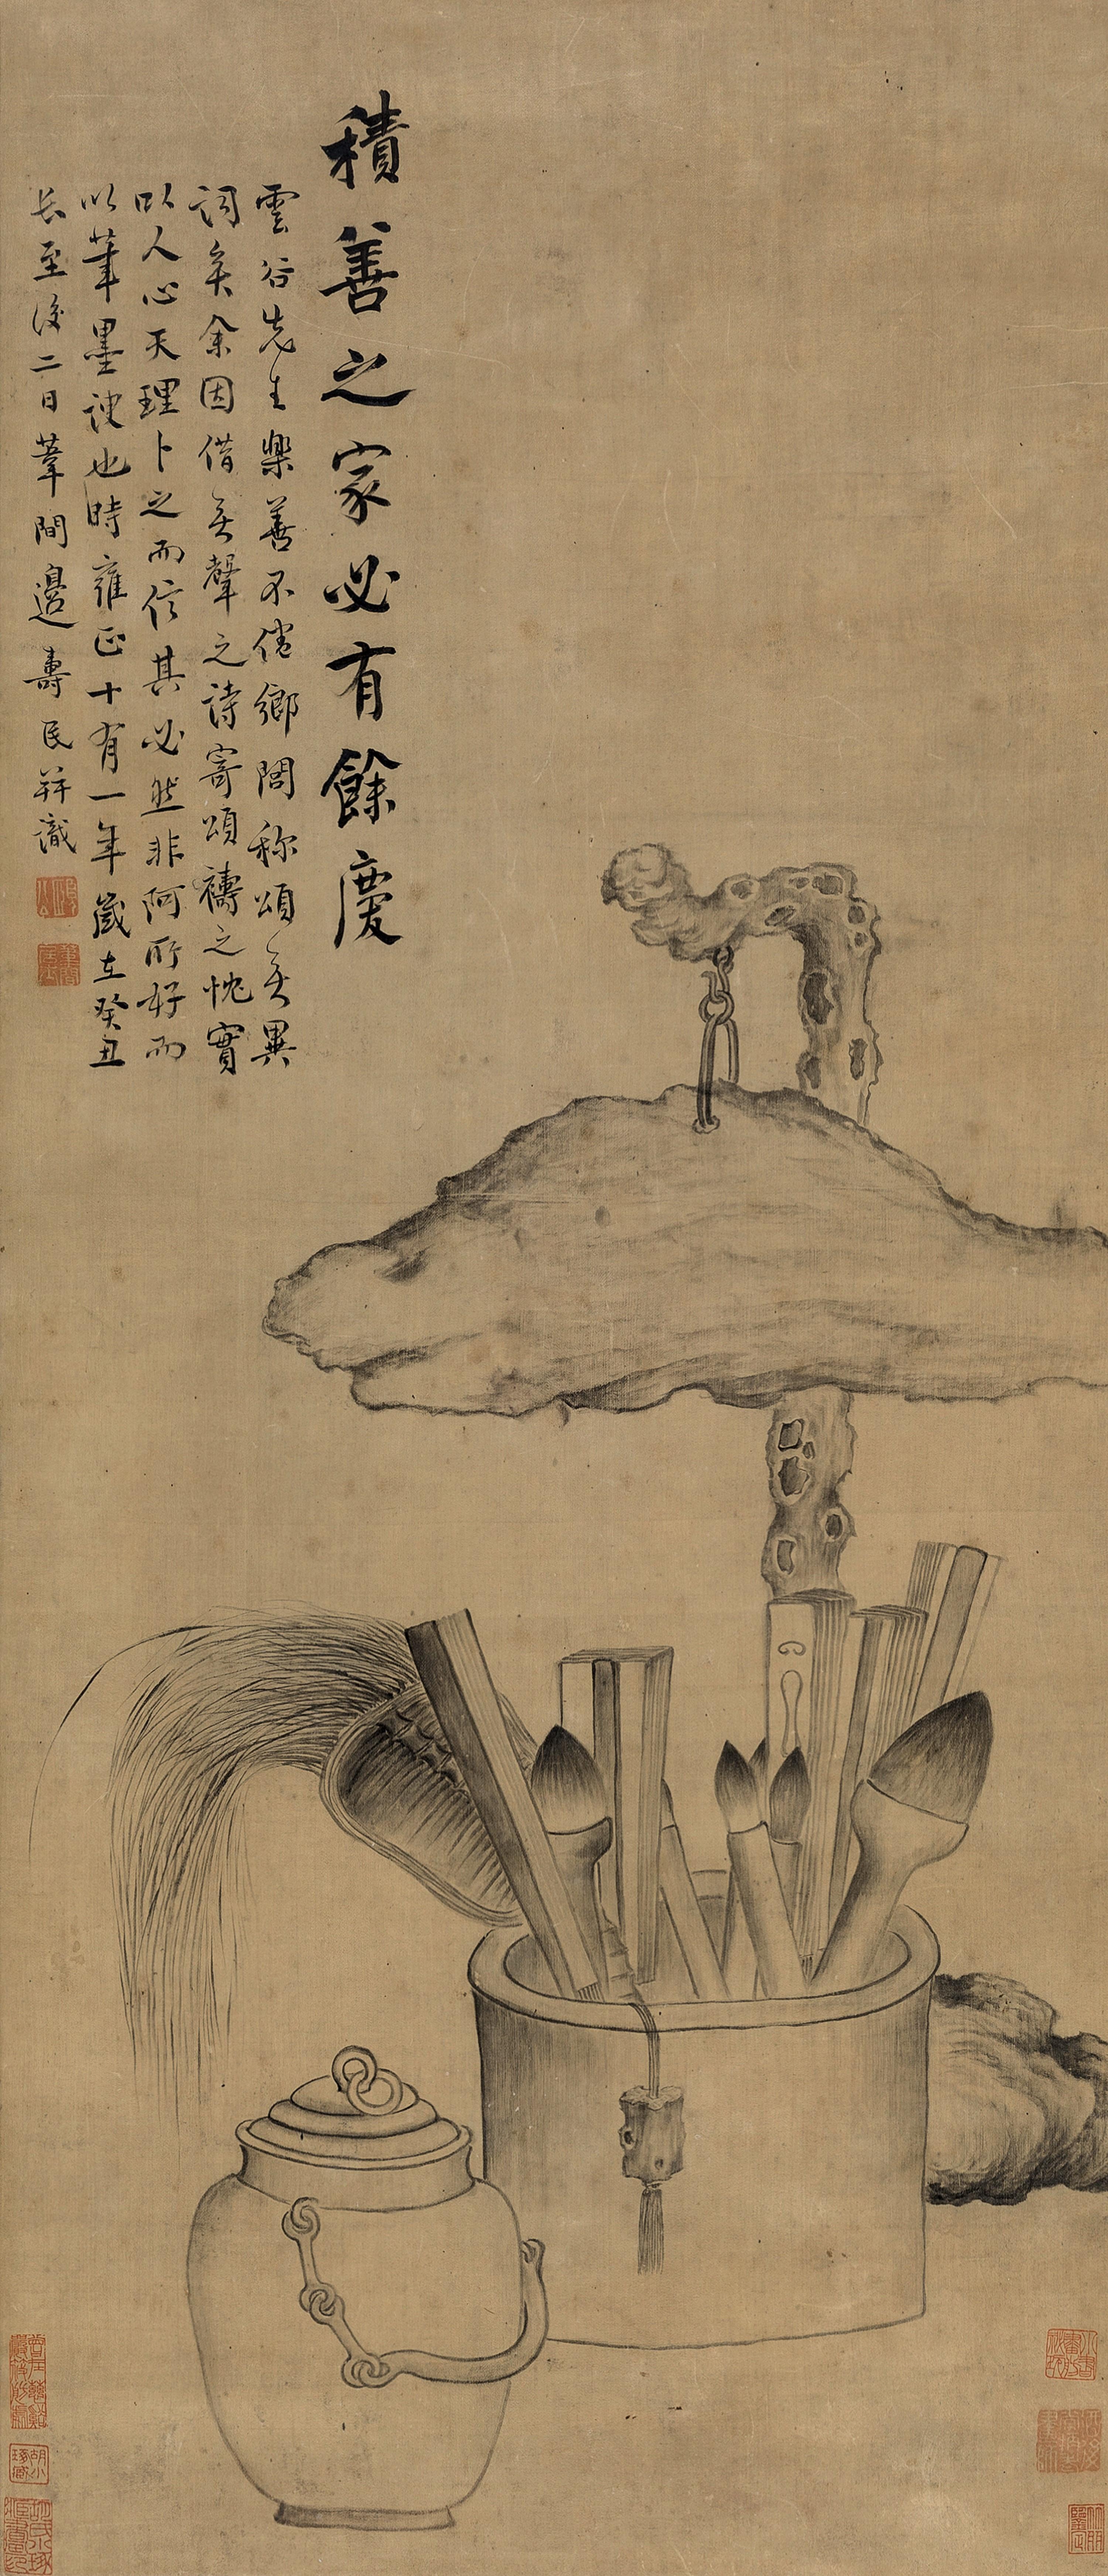 積善之家必有餘慶
雲谷先生樂善不倦鄉閭称頌無異
詞矣余因借無聲之詩寄頌禱之忱實
以人心天理卜之而信其必然非阿所好而
以筆墨諛也時雍正十有一年歲在癸丑
長至後二日葦間邊壽民并識